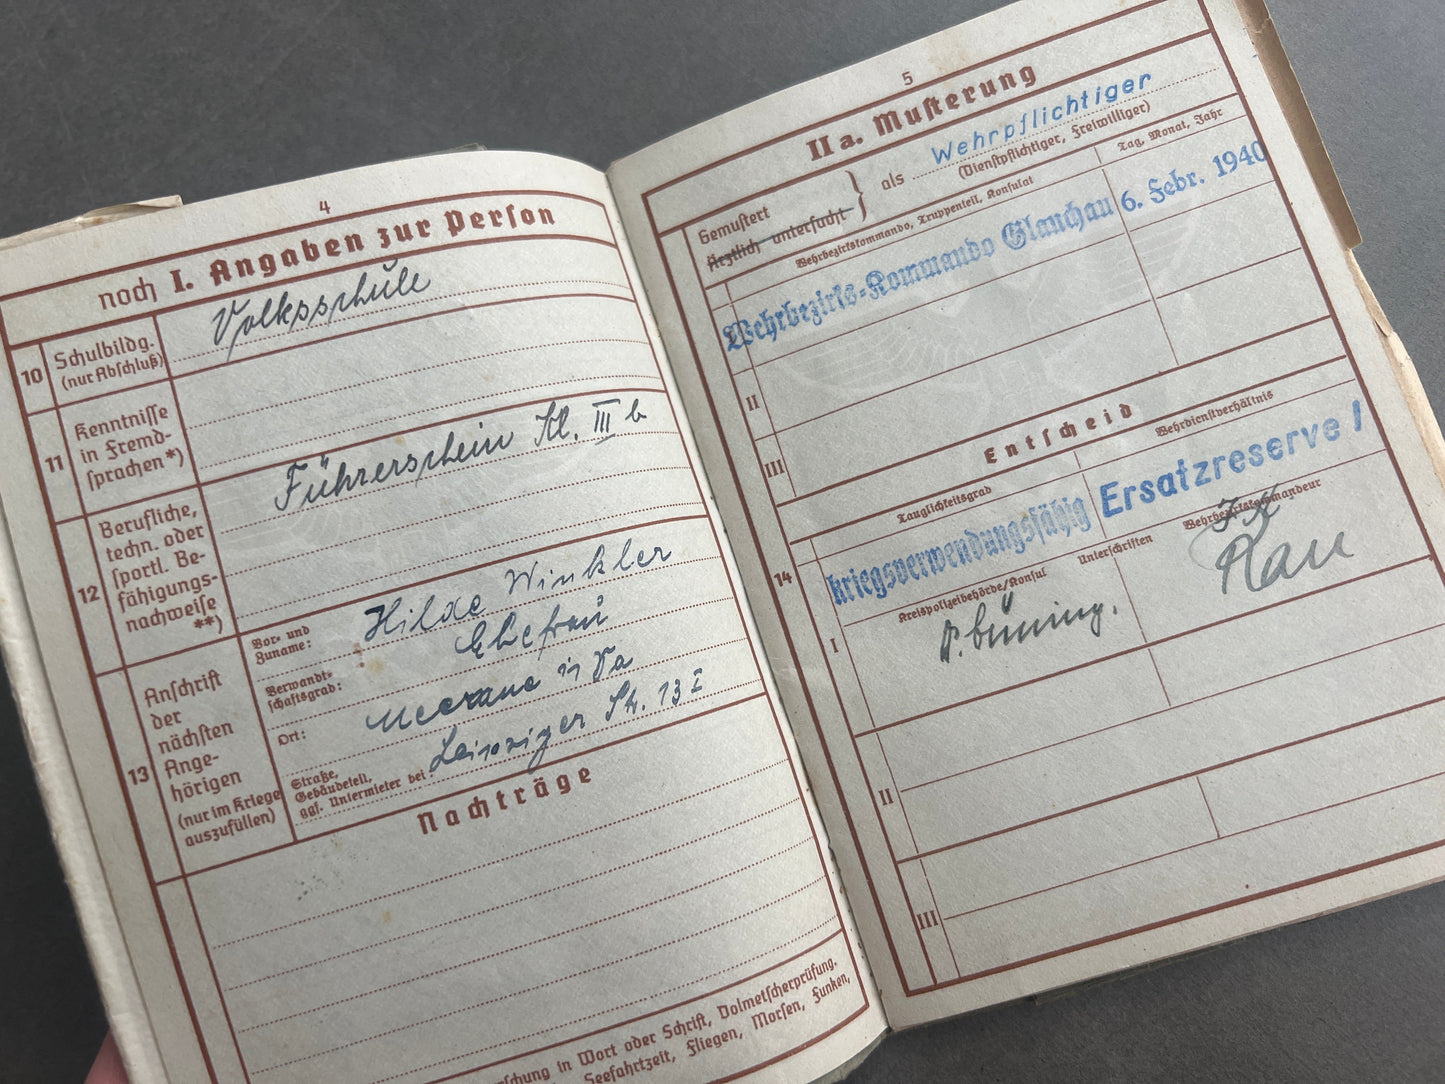 4
noch I. Angaben zur Person
10 Schulbildg. (nur Abschluß)
Volksschule
11 Kenntnisse in Fremd-
sprachen*)
12 Berufliche,
techn. oder
sportl. Be-
fähigungs-
nachweise
**)
Führerschein Kl. III b
13 Anschrift
der
nächsten
Ange-
hörigen
(nur im Kriege
auszufüllen)
Vor- und
Zuname:
Hilde Winkler
Verwandt-
schaftsgrad:
Ehefrau
Ort:
Meerane i/Sa
Straße,
Gebäudeteil,
ggf. Untermieter bei:
Leipziger Str. 13 I
Nachträge
in Wort oder Schrift, Dolmetscherprüfung.
Seefahrtzeit, Fliegen, Morsen, Funken,
5
II a. Musterung
Gemustert
Ärztlich untersucht
als Wehrpflichtiger
(Dienstpflichtiger, Freiwilliger)
Wehrbezirkskommando, Truppenteil, Konsulat
Tag, Monat, Jahr
I
Wehrbezirks-Kommando Glauchau 6. Febr. 1940
II
III
Entscheid
Tauglichkeitsgrad
Wehrdienstverhältnis
14
kriegsverwendungsfähig Ersatzreserve I
Kreispolizeibehörde/Konsul
Unterschriften
Wehrbezirkskommandeur
I
II
III